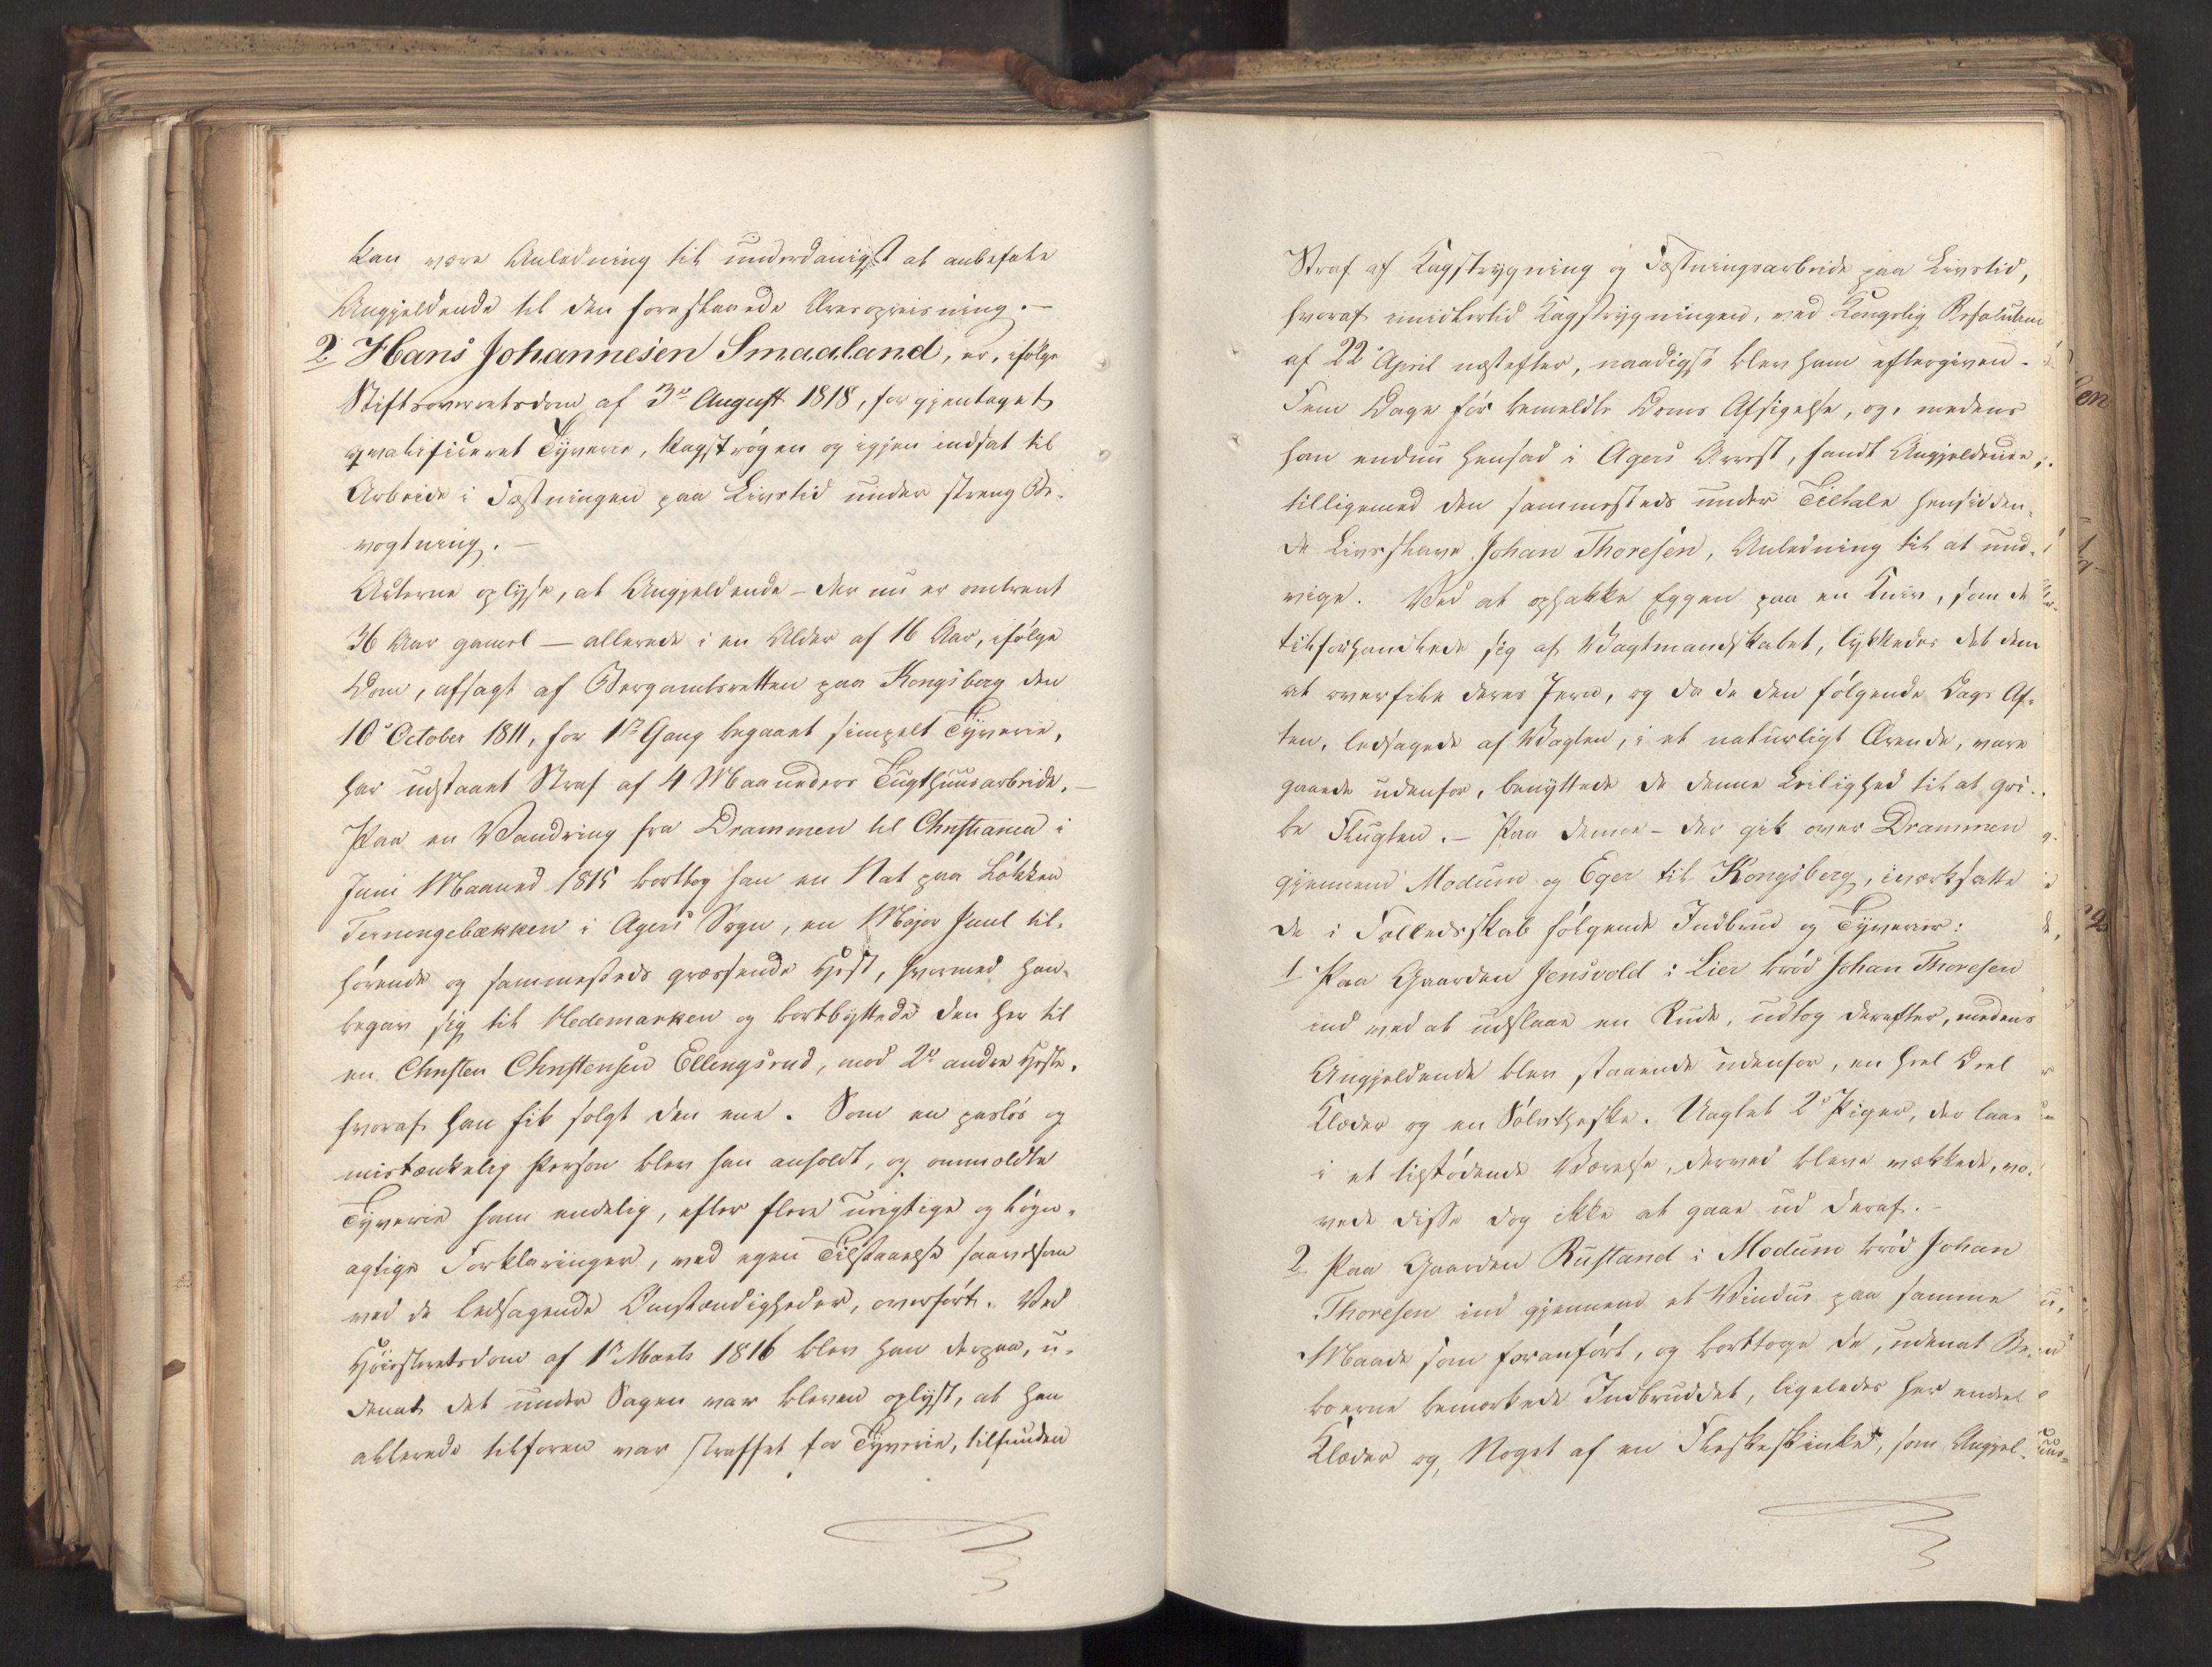 kan være Anledning til underdanigst at anbefale
Angjeldende til den foreslaaede Æresopreisning. -
2 Hans Johannesen Smaaland, er, ifølge
Stiftsoverretsdom af 3die August 1818, for gjentaget
qvalificeret Tyverie, kagstrøgen og igjen indsat til
Arbeide i Fæstningen paa Livstid under streng Be-
vogtning. -
Acterne oplyse, at Angjeldende - der nu er omtrent
36 Aar gamel - allerede i en Alder af 16 Aar, ifølge
Dom, afsagt af Bergamtsretten paa Kongsberg den
10de October 1811, for 1ste Gang begaaet simpelt Tyverie,
har udstaaet Straf af 4 Maaneders Tugthuusarbeide. -
Paa en Vandring fra Drammen til Christiania i
Juni Maaned 1815 borttog han en Nat paa Løkken
Terningebækken i Agers Sogn, en Major Juul til-
hørende og sammesteds græssende Hest, hvormed han
begav sig til Hedemarken og bortbyttede den her til
en Christen Christensen Ellingsrud, mod 2de andre Heste,
hvoraf han fik solgt den ene. Som en pasløs og
mistænkelig Person blev han anholdt, og ommeldte
Tyverie ham endelig, efter flere urigtige og løgn-
agtige Forklaringer, ved egen Tilstaaelse saavelsom
ved de ledsagende Omstændigheder, overført. Ved
Høiesteretsdom af 1ste Marts 1816 blev han derpaa, u-
denat det under Sagen var bleven oplyst, at han
allerede tilforen var straffet for Tyverie, tilfunden
Straf af Kagstrygning og Fæstningsarbeide paa Livstid,
hvoraf imidlertid Kagstrygningen, ved Kongelig Resolution
af 22de April næstefter, naadigst blev ham eftergiven.
Fem Dage før bemeldte Doms Afsigelse, og, medens
han endnu hensad i Agers Arrest, fandt Angjeldende,
tilligemed den sammesteds under Tiltale hensidden-
de Livsslave Johan Thoresen, Anledning til at und-
vige. Ved at ophakke Eggen paa en Kniv, som de
tilforhandlede sig af Vagtmandskabet, lykkedes det dem
at overfile deres Jern, og da de den følgende Dags Af-
ten, ledsagede af Vagten, i et naturligt Ærende, vare
gaaede udenfor, benyttede de denne Leilighed til at gri-
be Flugten. - Paa denne - der gik over Drammen
gjennem Modum og Eger til Kongsberg, iværksatte
de i Fælledsskab følgende Indbrud og Tyverier:
1 Paa Gaarden Jensvold i Lier brød Johan Thoresen
ind ved at udslaae en Rude, udtog derefter, medens
Angjeldende blev staaende udenfor, en heel Deel
Klæder og en Sølvtheske. Uagtet 2de Piger, der laae
i et tilstødende Værelse, derved bleve vækkede, vo-
vede disse dog ikke at gaae ud deraf. -
2 Paa Gaarden Rustand i Modum brød Johan
Thoresen ind gjennem et Vindue paa samme
Maade som foranført, og borttoge de, udenat Be-
boerne bemærkede Indbruddet, ligeledes her endeel
Klæder og Noget af en Fleskeskinke, som Angjel-